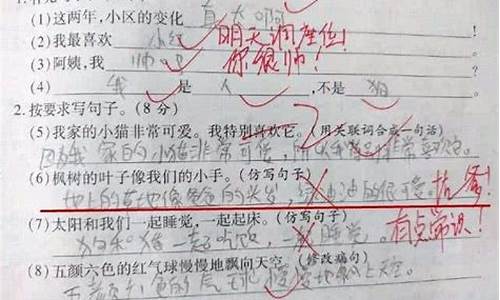 (1)这两年,小区的变化 真大啊
(2)我最喜欢 小红 明天调座位!
(3)阿姨,我 帅吧 你很帅!
(4) 我 是 人 ,不是 狗
2.按要求写句子。(8分)
(5)我家的小猫非常可爱。我特别喜欢它。(用关联词合成一句话)
因为我家的小猫非常可爱,所以我 非常喜欢它。
(6)枫树的叶子像我们的小手。(仿写句子)
地上的草地像爸爸的头发,绿油油的很 。抗爹!
(7)太阳和我们一起睡觉,一起起床。(仿写句子)
狗和猫一起吃饭,一起睡觉。 有点常识!
(8)五颜六色的红气球慢慢地飘向天空。(修改病句)
五颜六色的气球慢慢地飘上天空。